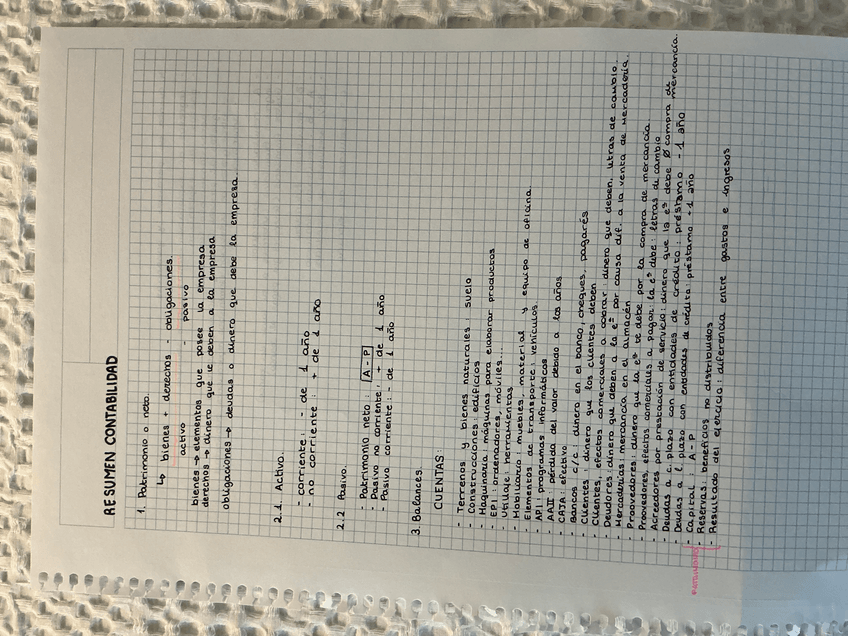 RESUMEN CONTABILIDAD
1. Patrimonio o neto.
↳ bienes + derechos - obligaciones.
activo - pasivo
bienes → elementos que posee la empresa
derechos → dinero que le deben a la empresa
obligaciones → deudas o dinero que debe la empresa.
2.1. Activo.
- corriente : - de 1 año
- no corriente : + de 1 año
2.2 Pasivo.
- Patrimonio neto : A - P
- Pasivo no corriente : + de 1 año
- Pasivo corriente : - de 1 año
3. Balances.
CUENTAS:
- Terrenos y bienes naturales : suelo
- Construcciones : edificios
- Maquinaria : máquinas para elaborar productos
- EPI : ordenadores, móviles...
- Utillaje : herramientas
- Mobiliario : muebles, material y equipo de oficina
- Elementos de transporte : vehículos.
- API : programas informáticos
- AAII : pérdida del valor debido a los años
- CAJA : efectivo
- Bancos c/c : dinero en el banco, cheques, pagarés
- Clientes : dinero que los clientes deben
- Clientes, efectos comerciales a cobrar : dinero que deben, letras de cambio.
- Deudores : dinero que deben a la eª por causa dif. a la venta de mercadería.
- Mercaderías : mercancía en el almacén
- Proveedores : dinero que la eª te debe por la compra de mercancía
- Proveedores, efectos comerciales a pagar : la eª debe : letras de cambio
- Acreedores por prestación de servicio : dinero que la eª debe Ø compra de mercancía.
- Deudas a c. plazo con entidades de crédito : préstamo - 1 año
- Deudas a l. plazo con entidades de crédito : préstamo + 1 año
- Capital : A - P
- Reservas : beneficios no distribuidos
- Resultado del ejercicio : diferencia entre gastos e ingresos